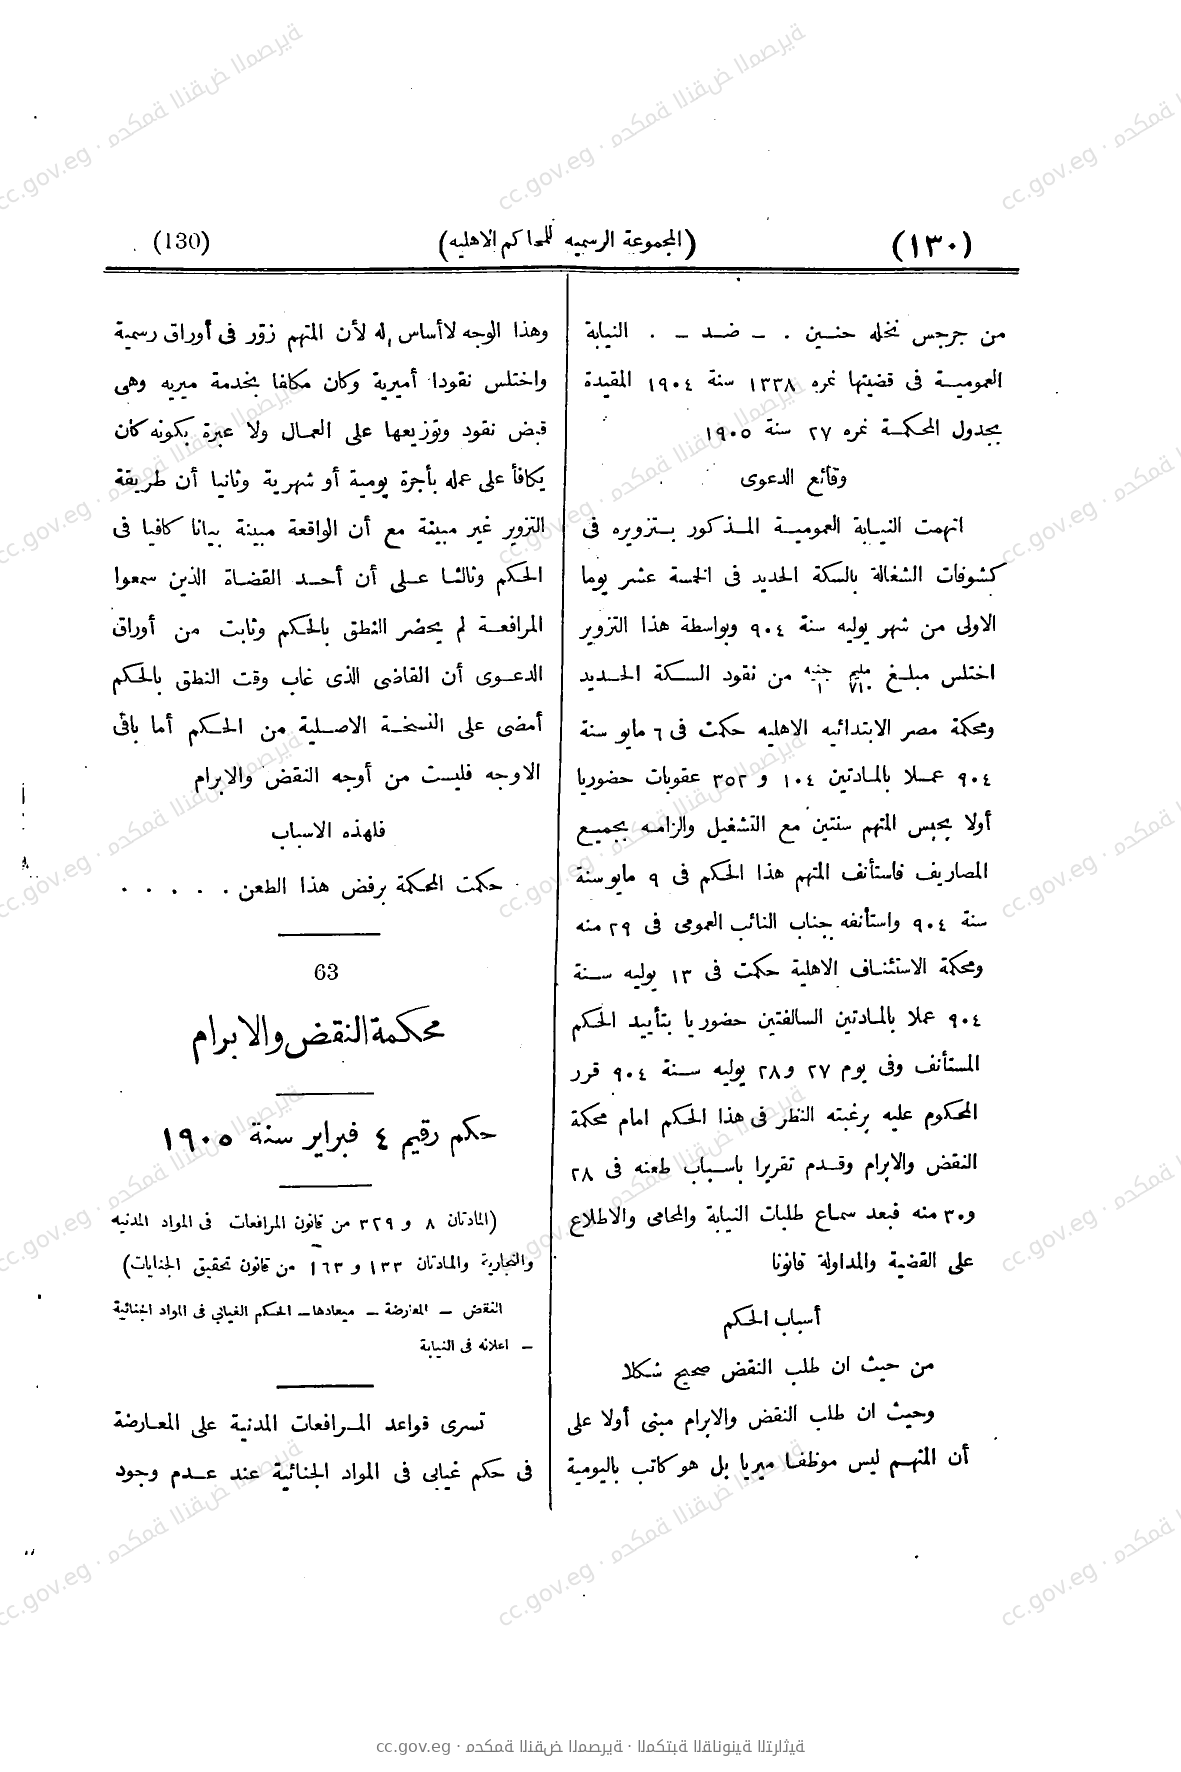 (١٣٠)
(المجموعة الرسميه للمحاكم الاهليه)
(130)
من جرجس نخله حنين . ـ ضد ـ . النيابة
العمومية فى قضيتها نمره ١٣٣٨ سنة ١٩٠٤ المقيدة
بجدول المحكمة نمره ٢٧ سنة ١٩٠٥
وقائع الدعوى
اتهمت النيابة العمومية المذكور بتزويره فى
كشوفات الشغالة بالسكة الحديد فى الخمسة عشر يوما
الاولى من شهر يوليه سنة ٩٠٤ وبواسطة هذا التزوير
اختلس مبلغ مليم ٧١٠ جنيه ١ من نقود السكة الحديد
ومحكمة مصر الابتدائيه الاهليه حكمت فى ٦ مايو سنة
٩٠٤ عملا بالمادتين ١٠٤ و ٣٥٢ عقوبات حضوريا
أولا بحبس المتهم سنتين مع التشغيل والزامه بجميع
المصاريف فاستأنف المتهم هذا الحكم فى ٩ مايو سنة
سنة ٩٠٤ واستأنفه جناب النائب العمومى فى ٢٩ منه
ومحكمة الاستئناف الاهلية حكمت فى ١٣ يوليه سنة
٩٠٤ عملا بالمادتين السالفتين حضوريا بتأييد الحكم
المستأنف وفى يوم ٢٧ و٢٨ يوليه سنة ٩٠٤ قرر
المحكوم عليه برغبته النظر فى هذا الحكم امام محكمة
النقض والابرام وقدم تقريرا باسباب طعنه فى ٢٨
و٣٠ منه فبعد سماع طلبات النيابة والمحامى والاطلاع
على القضية والمداولة قانونا
أسباب الحكم
من حيث ان طلب النقض صحيح شكلا
وحيث ان طلب النقض والابرام مبنى أولا على
أن المتهم ليس موظفا ميريا بل هو كاتب باليومية
وهذا الوجه لاأساس له لأن المتهم زوّر فى أوراق رسمية
واختلس نقودا أميرية وكان مكلفا بخدمة ميريه وهى
قبض نقود وتوزيعها على العمال ولا عبرة بكونه كان
يكافأ على عمله بأجرة يومية أو شهرية وثانيا أن طريقة
التزوير غير مبينة مع أن الواقعة مبينة بيانا كافيا فى
الحكم وثالثا على أن أحد القضاة الذين سمعوا
المرافعة لم يحضر النطق بالحكم وثابت من أوراق
الدعوى أن القاضى الذى غاب وقت النطق بالحكم
أمضى على النسخة الاصلية من الحكم أما باقى
الاوجه فليست من أوجه النقض والابرام
فلهذه الاسباب
حكمت المحكمة برفض هذا الطعن . . . . .
63
محكمة النقض والابرام
حكم رقيم ٤ فبراير سنة ١٩٠٥
(المادتان ٨ و ٣٢٩ من قانون المرافعات فى المواد المدنيه
والتجارية والمادتان ١٣٣ و ١٦٣ من قانون تحقيق الجنايات)
النقض ـ المعارضة ـ ميعادها ـ الحكم الغيابي فى المواد الجنائية
ـ اعلانه فى النيابة
تسرى قواعد المرافعات المدنية على المعارضة
فى حكم غيابى فى المواد الجنائية عند عدم وجود
cc.gov.eg · محكمة النقض المصرية · المكتبة القانونية التراثية